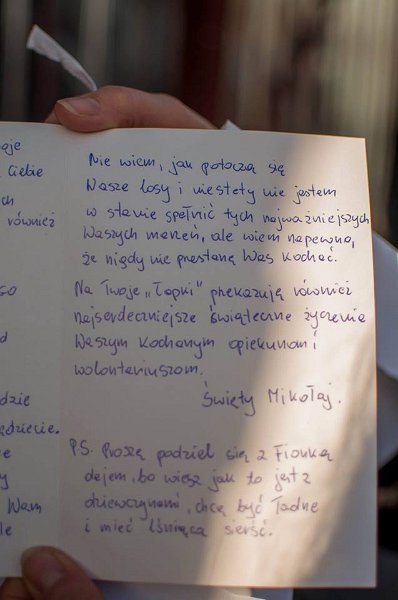 oje
Ciebie
ch
również
so
d
dzie
ędziecie.
e
y
Wam
le
Nie wiem, jak potoczą się
Wasze losy i niestety nie jestem
w stanie spełnić tych najważniejszych
Waszych marzeń, ale wiem napewno,
że nigdy nie przestanę Was kochać.
Na Twoje „Łapki” przekazuję również
najserdeczniejsze świąteczne życzenia
Waszym kochanym opiekunom i
wolontariuszom.
Święty Mikołaj.
P.S. Proszę podziel się z Fionką
olejem, bo wiesz jak to jest z
dziewczynami, chcą być ładne
i mieć lśniącą sierść.